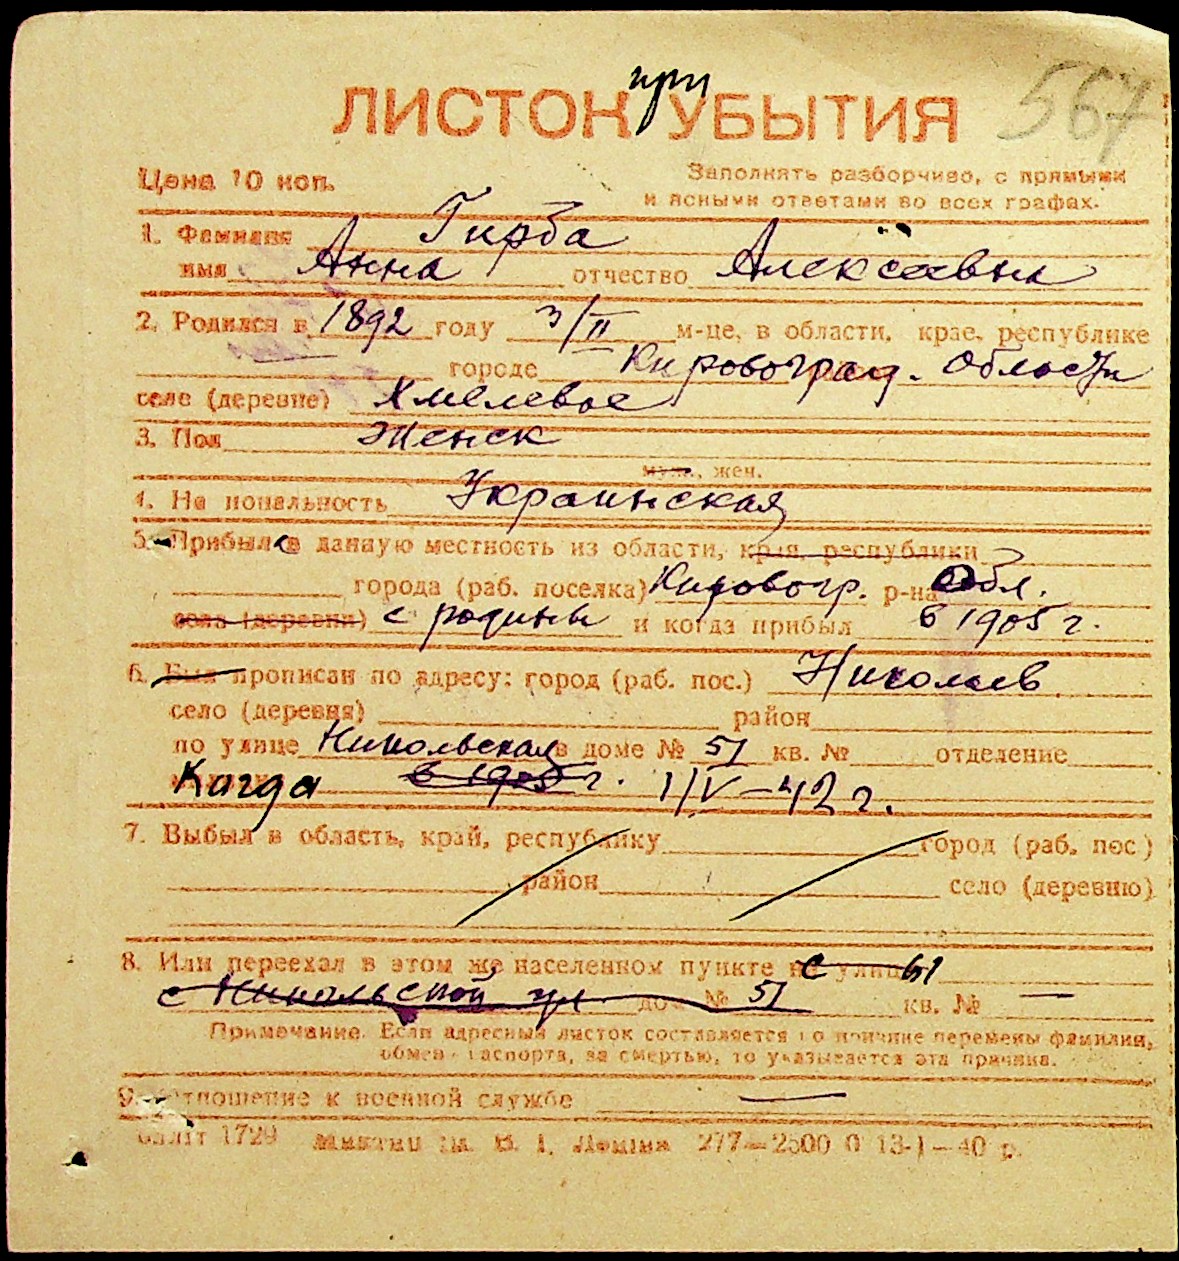 567
при
ЛИСТОК УБЫТИЯ
Цена 10 коп.
Заполнять разборчиво, с прямыми
и ясными ответами во всех графах.
1. Фамилия Гирба
имя Анна отчество Алексеевна
2. Родился в 1892 году 3/II м-це, в области, крае, республике
городе Кировоград. Области
селе (деревне) Хмелевое
3. Пол Женск
муж., жен.
4. Национальность Украинская
5. Прибыл в данную местность из области, края, республики
города (раб. поселка) Кировогр. р-на Обл.
села (деревни) с родины и когда прибыл в 1905 г.
6. Был прописан по адресу: город (раб. пос.) Николаев
село (деревня) район
по улице Никольская в доме № 51 кв. № отделение
Когда в 1905 г. 1/V-42 г.
7. Выбыл в область, край, республику город (раб. пос.)
район село (деревню)
8. Или переехал в этом же населенном пункте на с улицы
с Никольской ул. дом № 51 кв. № —
Примечание. Если адресный листок составляется по причине перемены фамилии,
обмена паспорта, за смертью, то указывается эта причина.
9. Отношение к военной службе —
1729 277—2500 0 13-I-40 р.